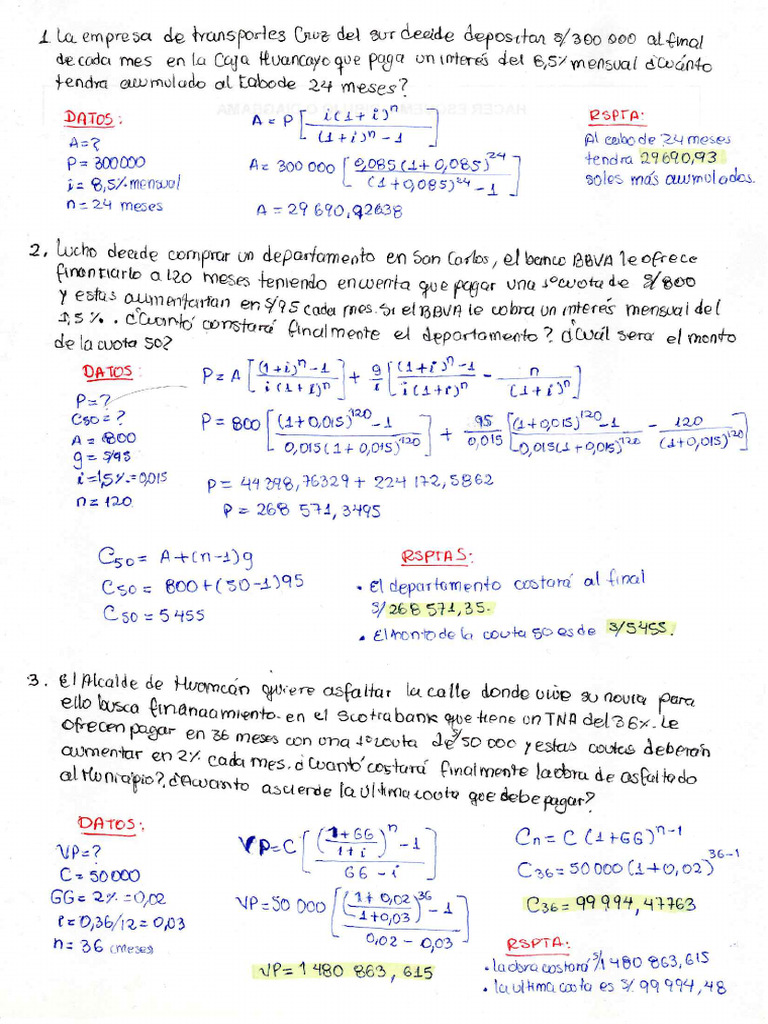 1. La empresa de transportes Cruz del sur decide depositar S/300 000 al final
de cada mes en la Caja Huancayo que paga un interés del 8,5% mensual ¿Cuánto
tendra acumulado al cabo de 24 meses?
DATOS:
A=?
P=300000
i= 8,5% mensual
n=24 meses
A = P [ i(1+i)^n / (1+i)^n - 1 ]
A = 300 000 [ 0,085(1+0,085)^24 / (1+0,085)^24 - 1 ]
A = 29 690,92638
RSPTA:
Al cabo de 24 meses
tendra 29690,93
soles más acumulados.
2. Lucho decide comprar un departamento en San Carlos, el banco BBVA le ofrece
financiarlo a 120 meses teniendo en cuenta que pagar una 1° cuota de S/800
y estas aumentartan en S/95 cada mes. Si el BBVA le cobra un interés mensual del
1,5%. ¿Cuantó constará finalmente el departamento? ¿Cuál sera el monto
de la cuota 50?
DATOS:
P=?
C50=?
A = 800
g= S/95
i=1,5%=0,015
n=120
P = A [ (1+i)^n - 1 / i(1+i)^n ] + g/i [ (1+i)^n - 1 / i(1+i)^n - n / (1+i)^n ]
P = 800 [ (1+0,015)^120 - 1 / 0,015(1+0,015)^120 ] + 95/0,015 [ (1+0,015)^120 - 1 / 0,015(1+0,015)^120 - 120 / (1+0,015)^120 ]
P = 44 398,76329 + 224 172,5862
P = 268 571,3495
C50 = A+(n-1)g
C50 = 800+(50-1)95
C50 = 5455
RSPTAS:
• El departamento costará al final
S/268 571,35.
• El monto de la couta 50 es de S/5455.
3. El Alcalde de Huamcán quiere asfaltar la calle donde vive su novia para
ello busca financiamiento en el Scotiabank que tiene un TNA del 36%. Le
ofrecen pagar en 36 meses con una 1° couta de S/50 000 y estas coutas deberán
aumentar en 2% cada mes. ¿Cuantó costará finalmente la obra de asfaltado
al Municipio?, ¿A cuanto asciende la última couta que debe pagar?
DATOS:
VP=?
C= 50000
GG= 2%=0,02
i=0,36/12=0,03
n= 36 (meses)
VP=C [ (1+GG / 1+i)^n - 1 / GG - i ]
VP=50 000 [ (1+0,02 / 1+0,03)^36 - 1 / 0,02 - 0,03 ]
VP= 1 480 863,615
Cn = C (1+GG)^n-1
C36 = 50 000 (1+0,02)^36-1
C36 = 99 994,47763
RSPTA:
• la obra costará S/1 480 863,615
• la última costa es S/. 99 994,48